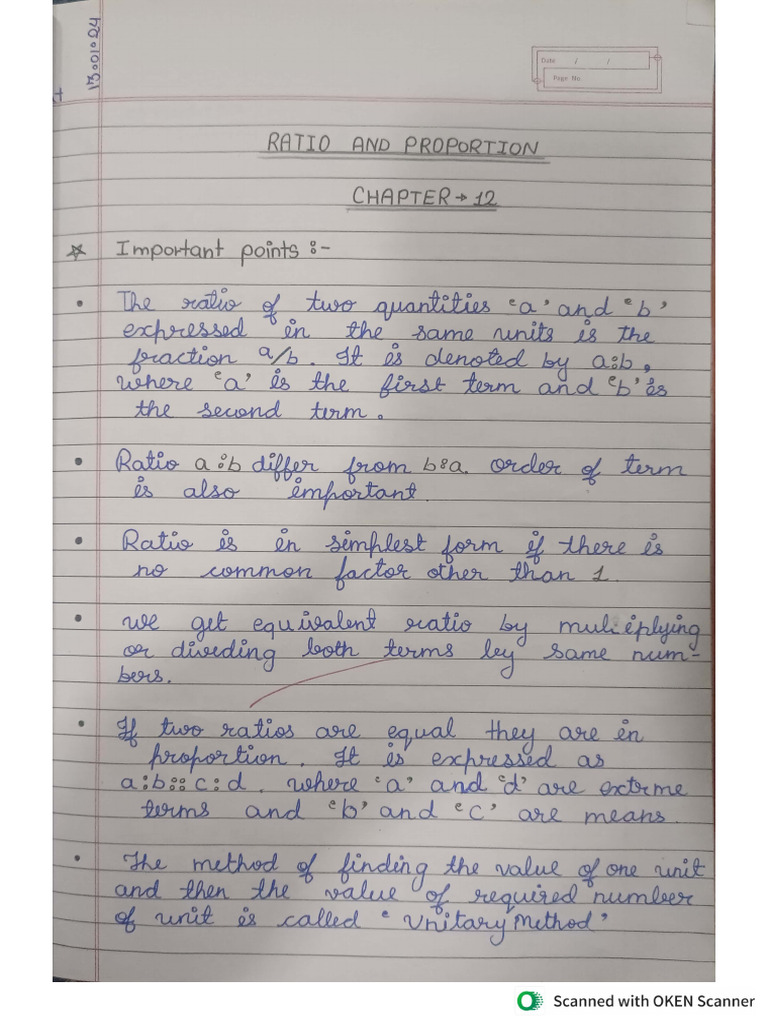 13.01.24
Date / /
Page No.
RATIO AND PROPORTION
CHAPTER → 12
☆ Important points :-
• The ratio of two quantities 'a' and 'b'
expressed in the same units is the
fraction a/b. It is denoted by a:b,
where 'a' is the first term and 'b' is
the second term.
• Ratio a:b differ from b:a. order of term
is also important.
• Ratio is in simplest form if there is
no common factor other than 1.
• we get equivalent ratio by multiplying
or dividing both terms by same num-
bers.
• If two ratios are equal they are in
proportion. It is expressed as
a:b::c:d. where 'a' and 'd' are extrme
terms and 'b' and 'c' are means.
• The method of finding the value of one unit
and then the value of required number
of unit is called 'Unitary Method'
Scanned with OKEN Scanner